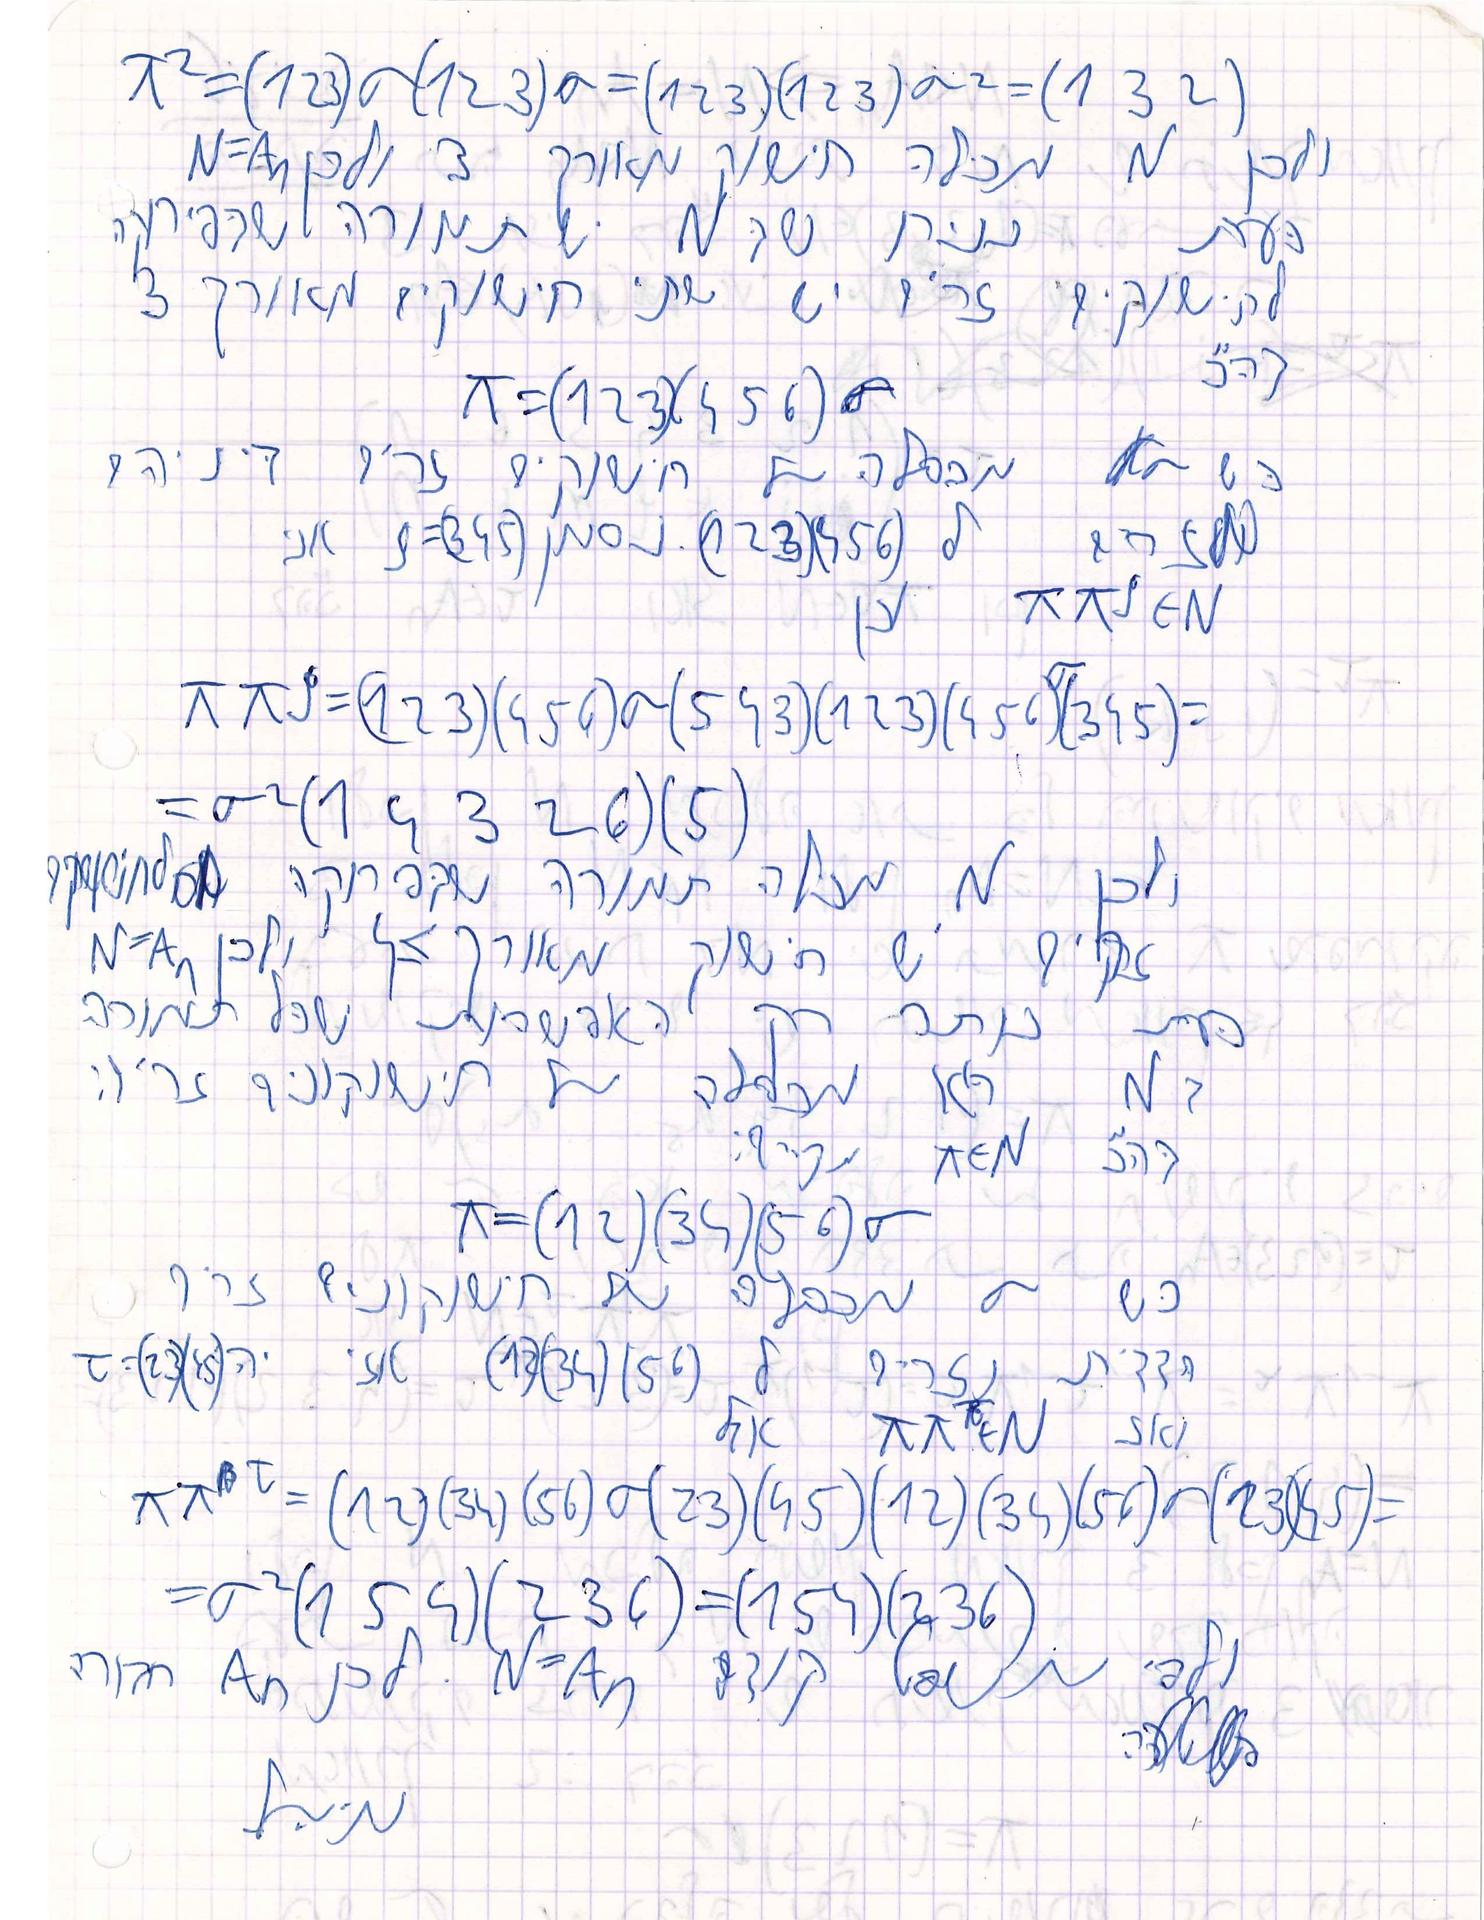 π²=(123)σ(123)σ=(123)(123)σ²=(1 3 2)
ולכן N מכילה חישוק מאורך 3 ולכן N=Aₙ
כעת נניח שב N יש תמורה שבפירוקה
לחישוקים זרים יש שתי חישוקים מאורך 3
בה"כ
π=(123)(456)σ
כש σ מכפלה של חישוקים זרים ביניהם
וזרים ל (123)(456). נסמן ρ=(345) אזי
ππ^ρ∈N לכן
ππ^ρ=(123)(456)σ(543)(123)(456)σ(345)=
=σ²(1 4 3 2 6)(5)
ולכן N מכילה תמורה שבפירוקה לחישוקים
זרים יש חישוק מאורך ≥4 ולכן N=Aₙ
כעת נותר רק האפשרות שכל תמורה
ב N היא מכפלה של חישוקונים זרים
בה"כ π∈N מקיים:
π=(12)(34)(56)σ
כש σ מכפלה של חישוקונים זרים
הדדית וזרים ל (12)(34)(56) אזי יהי τ=(23)(45)
ואז ππ^τ∈N אבל
ππ^τ=(12)(34)(56)σ(23)(45)(12)(34)(56)σ(23)(45)=
=σ²(1 5 4)(2 3 6)=(154)(236)
ולפי משפט קודם N=Aₙ. לכן Aₙ חבורה